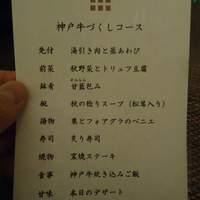 神戸牛づくしコース
先付 湯引き肉と蒸あわび
前菜 秋野菜とトリュフ豆腐
鉢肴 甘藍包み
椀 秋の吸りスープ(松茸入り)
揚物 栗とフォアグラのベニエ
寿司 炙り寿司
焼物 窯焼ステーキ
食事 神戸牛炊き込みご飯
甘味 本日のデザート